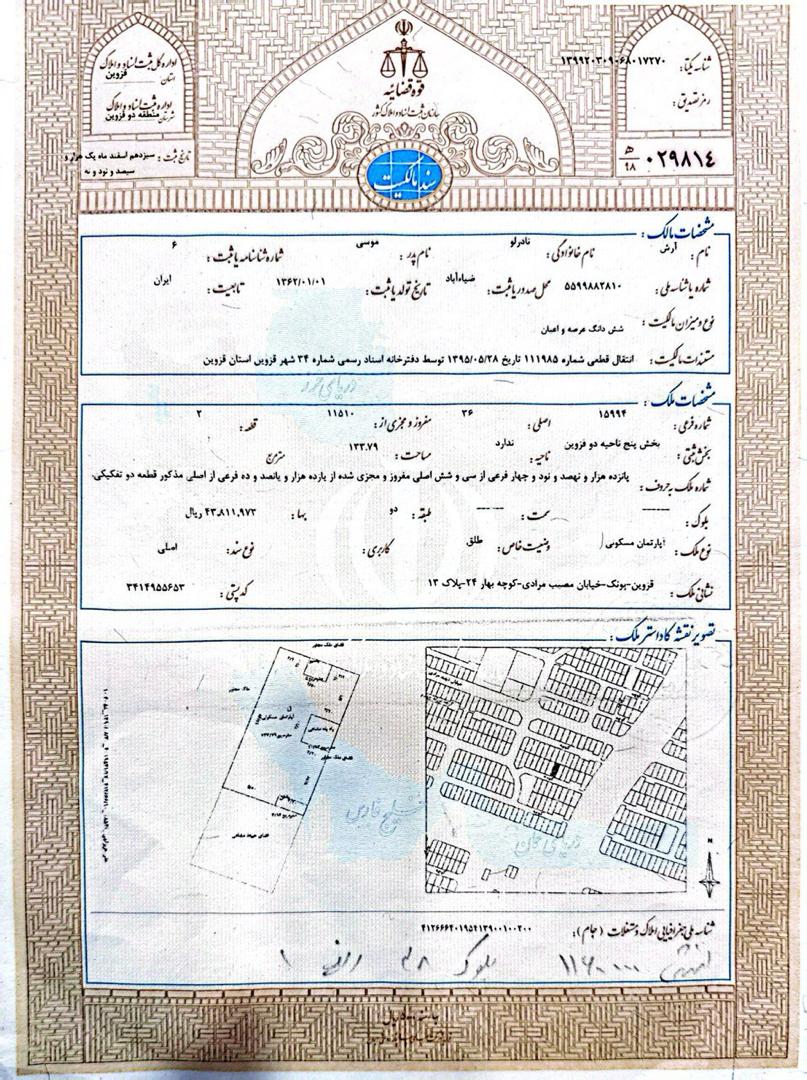 اداره کل ثبت اسناد و املاک
استان قزوین
اداره ثبت اسناد و املاک
شهرستان منطقه دو قزوین
تاریخ ثبت : سیزدهم اسفند ماه یک هزار و
سیصد و نود و نه
قوه قضائیه
سازمان ثبت اسناد و املاک کشور
سند مالکیت
شناسه یکتا: ۱۳۹۹۲۰۳۰۹۰۶۸۰۱۷۲۷۰
رمز تصدیق:
۰۲۹۸۱۴ ه‍/۹۸
مشخصات مالک :
نام : آرش نام خانوادگی : نادرلو نام پدر : موسی شماره شناسنامه یا ثبت : ۶
شماره یا شناسه ملی : ۵۵۹۹۸۸۲۸۱۰ محل صدور یا ثبت : ضیاءآباد تاریخ تولد یا ثبت : ۱۳۶۲/۰۱/۰۱ تابعیت : ایران
نوع و میزان مالکیت : شش دانگ عرصه و اعیان
مستندات مالکیت : انتقال قطعی شماره ۱۱۱۹۸۵ تاریخ ۱۳۹۵/۰۵/۲۸ توسط دفترخانه اسناد رسمی شماره ۳۴ شهر قزوین استان قزوین
دریای خزر
مشخصات ملک :
شماره فرعی : ۱۵۹۹۴ اصلی : ۳۶ مفروز و مجزی از : ۱۱۵۱۰ قطعه : ۲
بخش ثبتی : بخش پنج ناحیه دو قزوین ناحیه : ندارد مساحت : ۱۳۳.۷۹ مترمربع
شماره ملک به حروف : پانزده هزار و نهصد و نود و چهار فرعی از سی و شش اصلی مفروز و مجزی شده از یازده هزار و پانصد و ده فرعی از اصلی مذکور قطعه دو تفکیکی.
بلوک : ------ سمت : ------ طبقه : دو بها : ۴۳،۸۱۱،۹۷۳ ریال
نوع ملک : آپارتمان مسکونی وضعیت خاص : طلق کاربری : نوع سند : اصلی
نشانی ملک : قزوین-پونک-خیابان مصیب مرادی-کوچه بهار ۲۴-پلاک ۱۳ کد پستی : ۳۴۱۴۹۵۵۶۵۳
تصویر نقشه کاداستر ملک :
فضای ملک مجاور
ملک مجاور
آپارتمان مسکونی
راه پله مشاعی
فضای ملک مجاور
فضای حیاط مشاعی
خلیج فارس
دریای عمان
N
شناسه ملی جغرافیایی املاک و مستغلات (جام): ۴۱۲۶۶۶۴۰۱۹۵۴۱۳۹۰۰۱۰۰۲۰۰
بلوک ۲۸